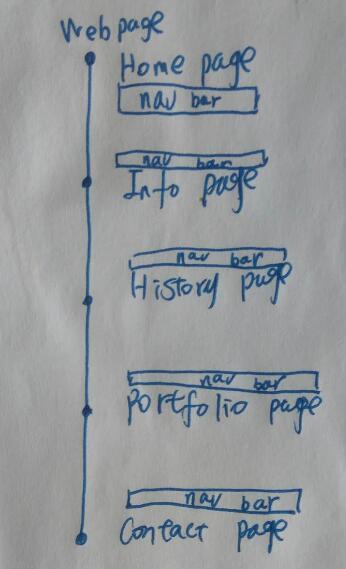 Web page
Home page
nav bar
nav bar
Info page
nav bar
History page
nav bar
Portfolio page
nav bar
Contact page